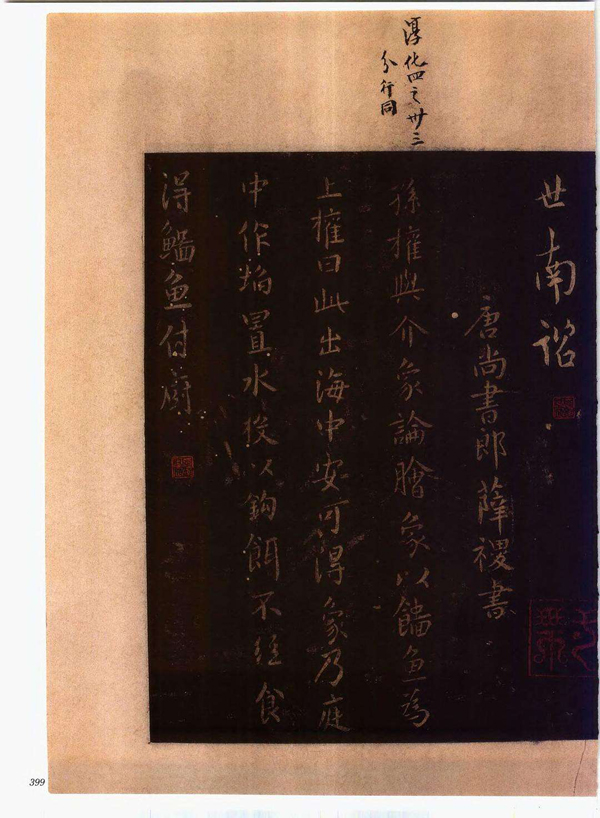 淳化四之卅三
分行同
世南諮
唐尚書郎薛稷書
孫權與介象論膾象以鯔魚為
上權曰此出海中安可得象乃庭
中作埳置水投以鉤餌不經食
得鯔魚付廚
399